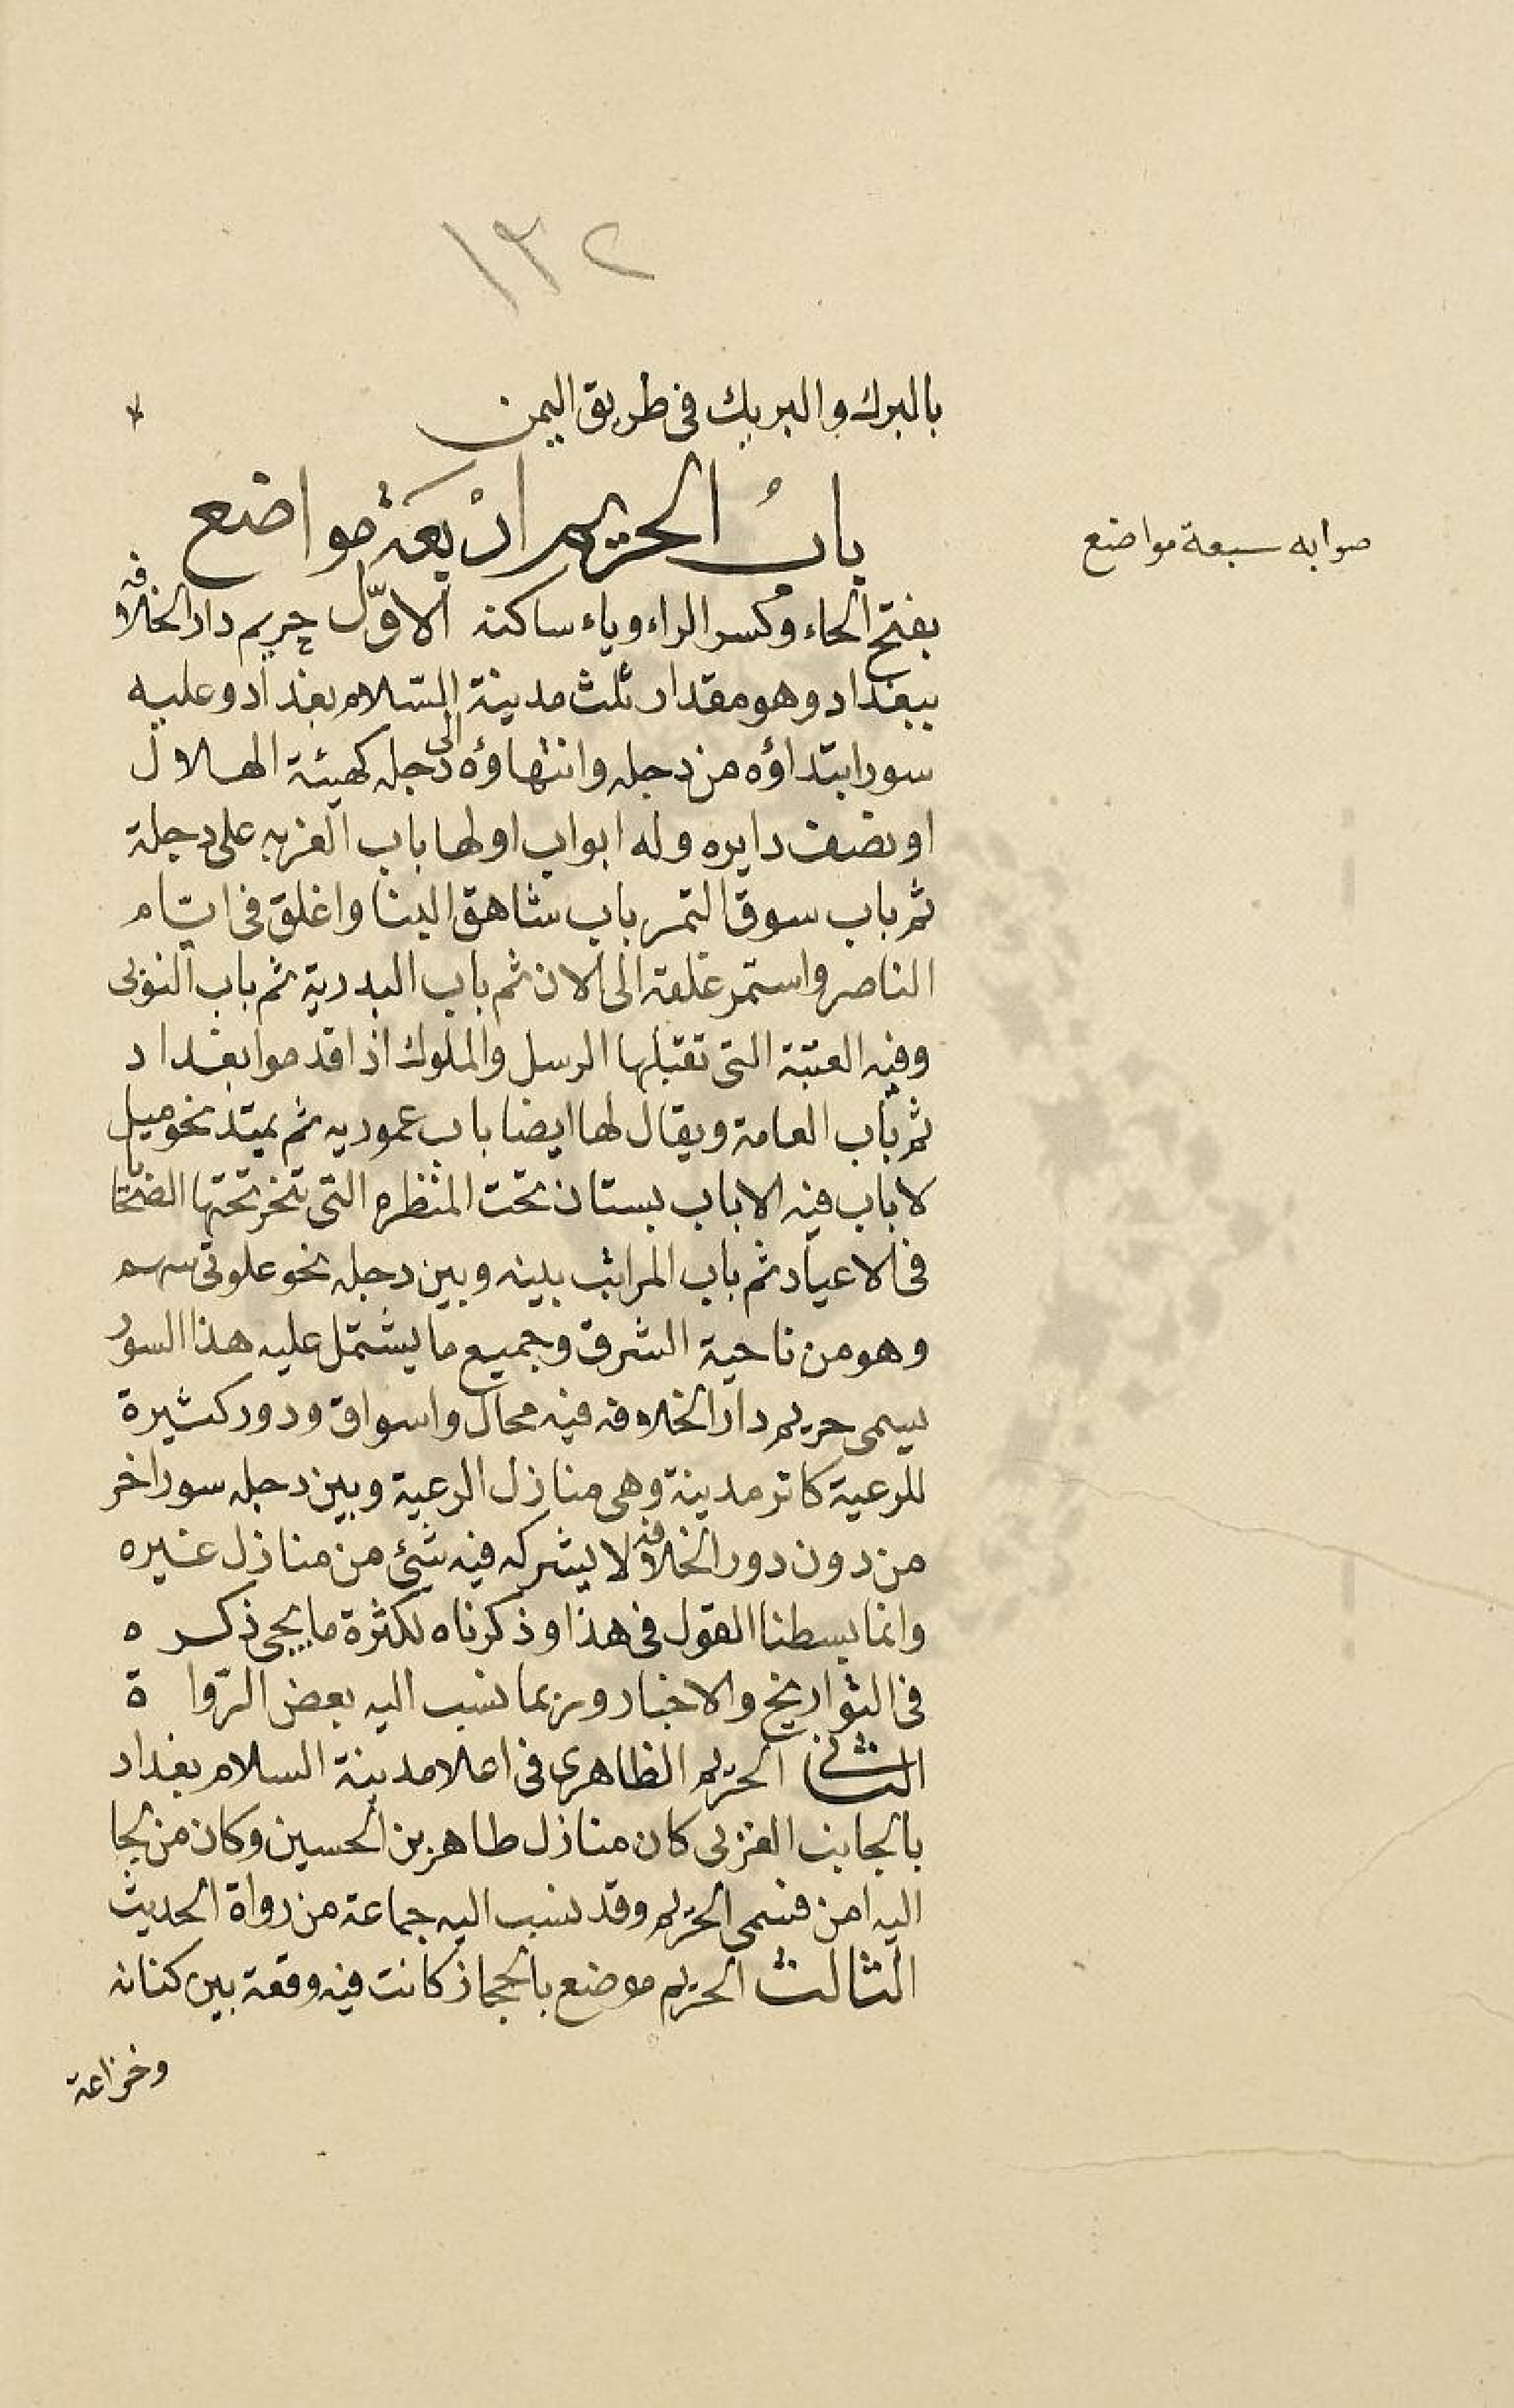 ١٣٢
بالبرك والبريك فى طريق اليمن
بابُ الحريم ارْبعَة مواضع
صوابه سبعة مواضع
بفتح الحاء وكسر الراء وياء ساكنة الاوّل حريم دار الخلافه
ببغداد وهو مقدار ثلث مدينة السّلام بغداد وعليه
سور ابتداؤه من دجله وانتهاؤه الى دجله كهيئة الهلال
او نصف دايره وله ابواب اولها باب الغربه على دجلة
ثم باب سوق التمر باب شاهق البنا واغلق فى ايّام
الناصر واستمر غلقه الى الان ثم باب البدرية ثم باب النوبى
وفيه العتبة التى تقبلها الرسل والملوك اذا قدموا بغداد
ثم باب العامة ويقال لها ايضا باب عموديه ثم يمتد نحو ميل
لا باب فيه الا باب بستان تحت المنظره التى تنحر تحتها الضحايا
فى الاعياد ثم باب المراتب بينه وبين دجله نحو غلوتى سهم
وهو من ناحية الشرق وجميع ما يشتمل عليه هذا السور
يسمى حريم دار الخلافه فيه محال واسواق ودور كثيرة
للرعية كاتر مدينة وهى منازل الرعية وبين دجله سور اخر
من دون دور الخلافه لا يشركه فيه شئ من منازل غيره
وانما بسطنا القول فى هذا وذكرناه لكثرة ما يجى ذكره
فى التواريخ والاخبار وربما نسب اليه بعض الرّواة
الثانى الحريم الظاهرى فى اعلا مدينة السلام بغداد
بالجانب الغربى كان منازل طاهر بن الحسين وكان من لجا
اليه امن فسمى الحريم وقد نسب اليه جماعة من رواة الحديث
الثالث الحريم موضع بالحجاز كانت فيه وقعة بين كنانه
وخزاعة